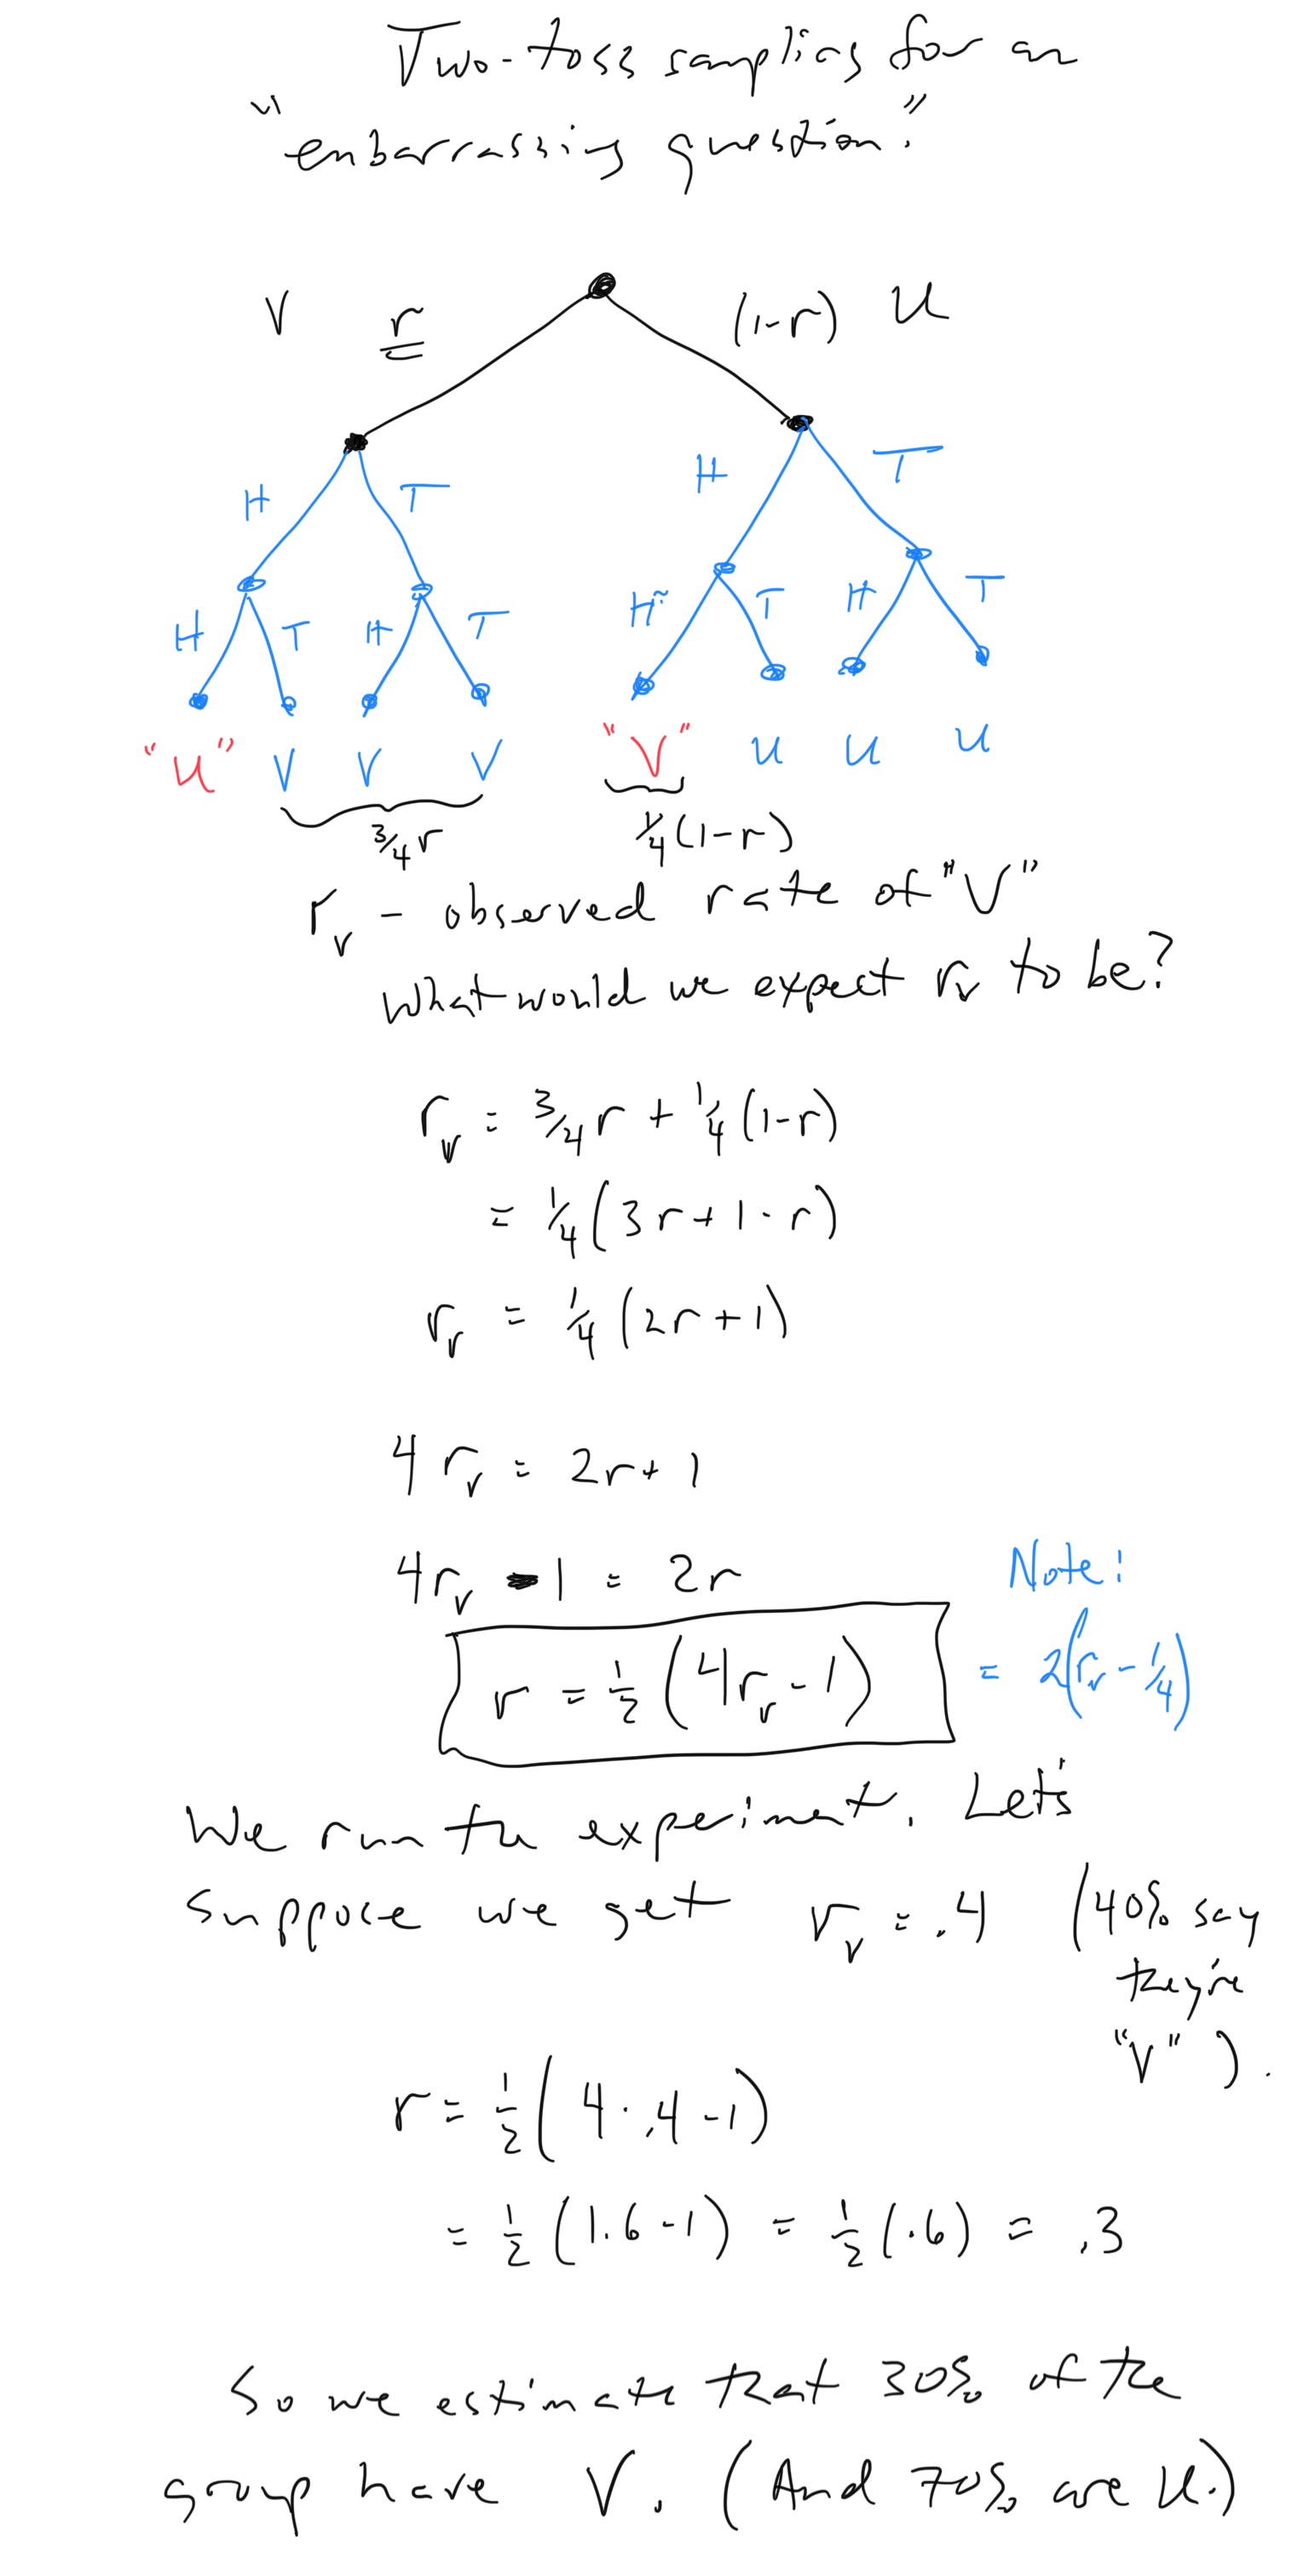 Two-toss sampling for an
"embarrassing question."
V r (1-r) U
H T H T
H T H T H T H T
"U" V V V "V" U U U
3/4 r 1/4 (1-r)
r_v - observed rate of "V"
What would we expect r_v to be?
r_v = 3/4 r + 1/4 (1-r)
= 1/4 (3r + 1 - r)
r_v = 1/4 (2r + 1)
4 r_v = 2r + 1
4 r_v - 1 = 2r
Note:
r = 1/2 (4 r_v - 1) = 2(r_v - 1/4)
We run the experiment. Let's
suppose we get r_v = .4 (40% say
they're
"V").
r = 1/2 (4 · .4 - 1)
= 1/2 (1.6 - 1) = 1/2 (.6) = .3
So we estimate that 30% of the
group have V. (And 70% are U.)